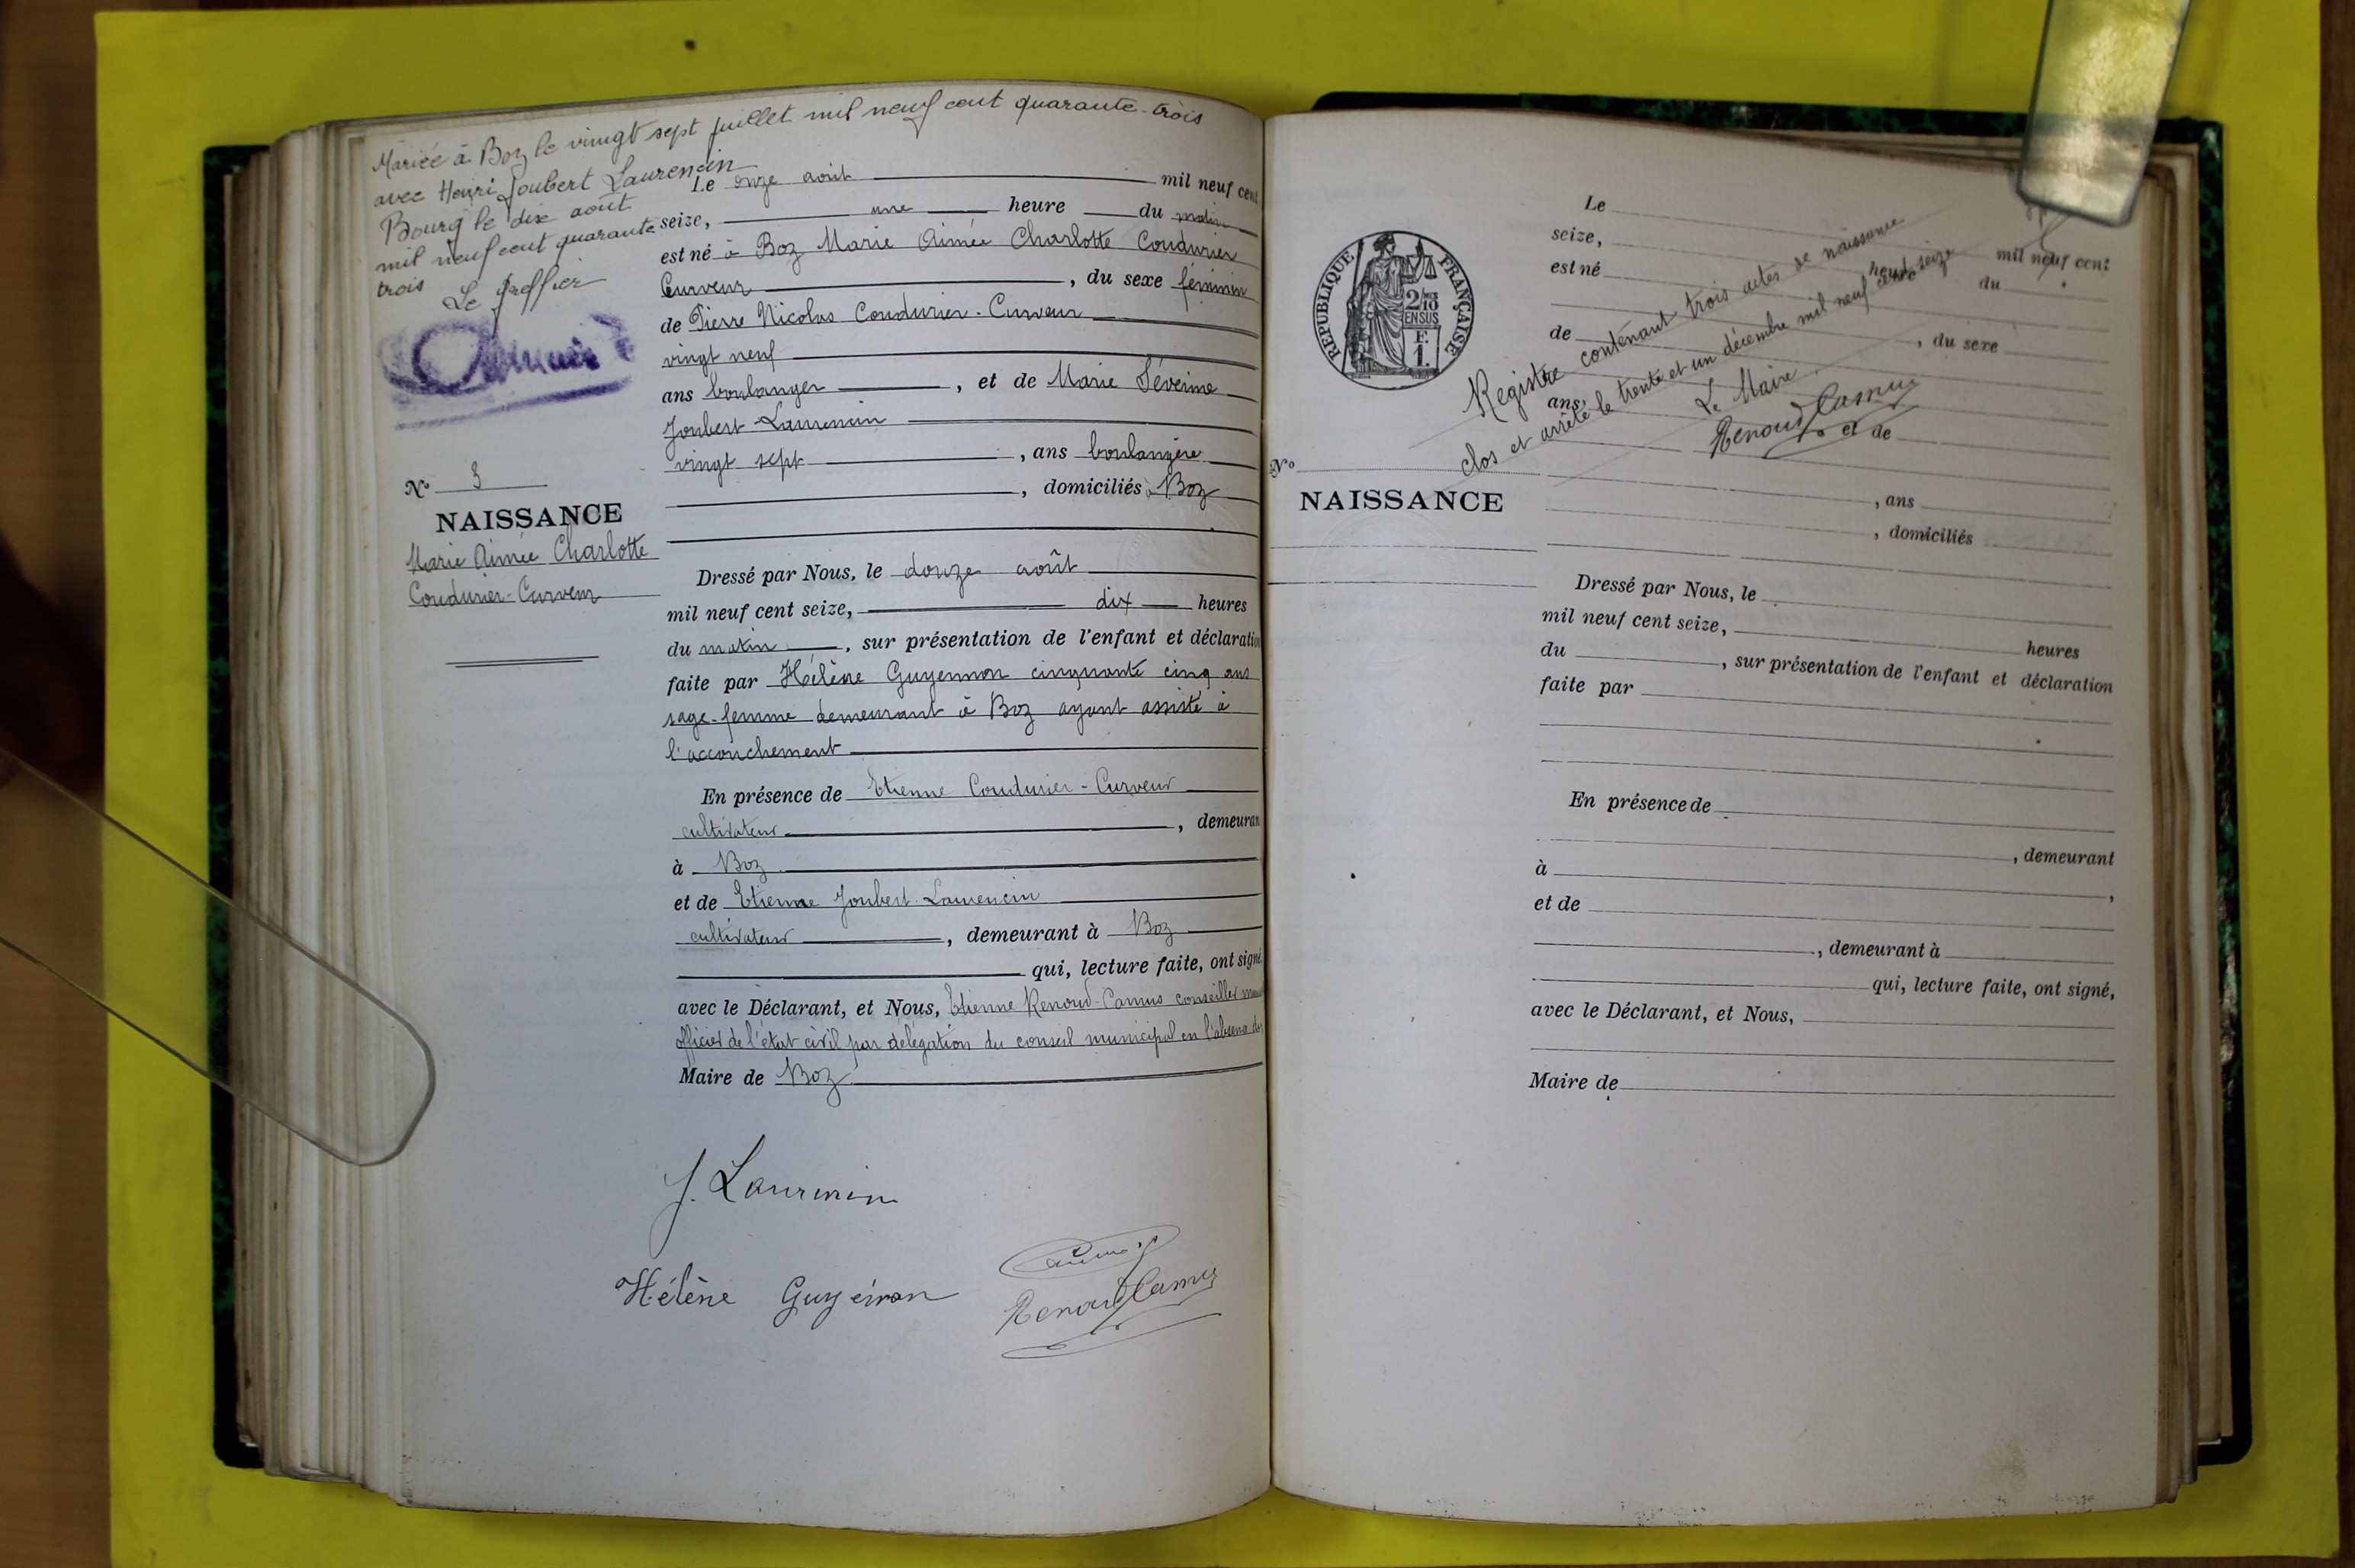 Mariée à Boz le vingt sept juillet mil neuf cent quarante-trois
avec Henri Joubert Laurencin
Bourg le dix août
mil neuf cent quarante
trois
Le Greffier
N° 3
NAISSANCE
Marie Aimée Charlotte
Coudurier-Curveur
Le onze août mil neuf cent
seize, une heure du matin
est né à Boz Marie Aimée Charlotte Coudurier
Curveur , du sexe féminin
de Pierre Nicolas Coudurier-Curveur
vingt neuf
ans boulanger , et de Marie Séverine
Joubert Laurencin
vingt sept , ans boulangère
, domiciliés à Boz
Dressé par Nous, le douze août
mil neuf cent seize, dix heures
du matin , sur présentation de l'enfant et déclaration
faite par Hélène Guyennon cinquante cinq ans
sage-femme demeurant à Boz ayant assisté à
l'accouchement
En présence de Etienne Coudurier-Curveur
cultivateur , demeuran
à Boz
et de Etienne Joubert-Laurencin
cultivateur , demeurant à Boz
qui, lecture faite, ont signé
avec le Déclarant, et Nous, Etienne Renoud-Camus conseiller
officier de l'état civil par délégation du conseil municipal en l'absence du
Maire de Boz
J. Laurencin
Hélène Guyénon
Renoud Camus
RÉPUBLIQUE FRANÇAISE
2/10
EN SUS
F.
1.
Registre contenant trois actes de naissance
clos et arrêté le trente et un décembre mil neuf cent seize
Le Maire
Renoud Camus
N°
NAISSANCE
Le mil neuf cent
seize, heure du
est né
, du sexe
de
ans, et de
, ans
, domiciliés
Dressé par Nous, le
mil neuf cent seize, heures
du , sur présentation de l'enfant et déclaration
faite par
En présence de
, demeurant
à ,
et de
, demeurant à
qui, lecture faite, ont signé,
avec le Déclarant, et Nous,
Maire de